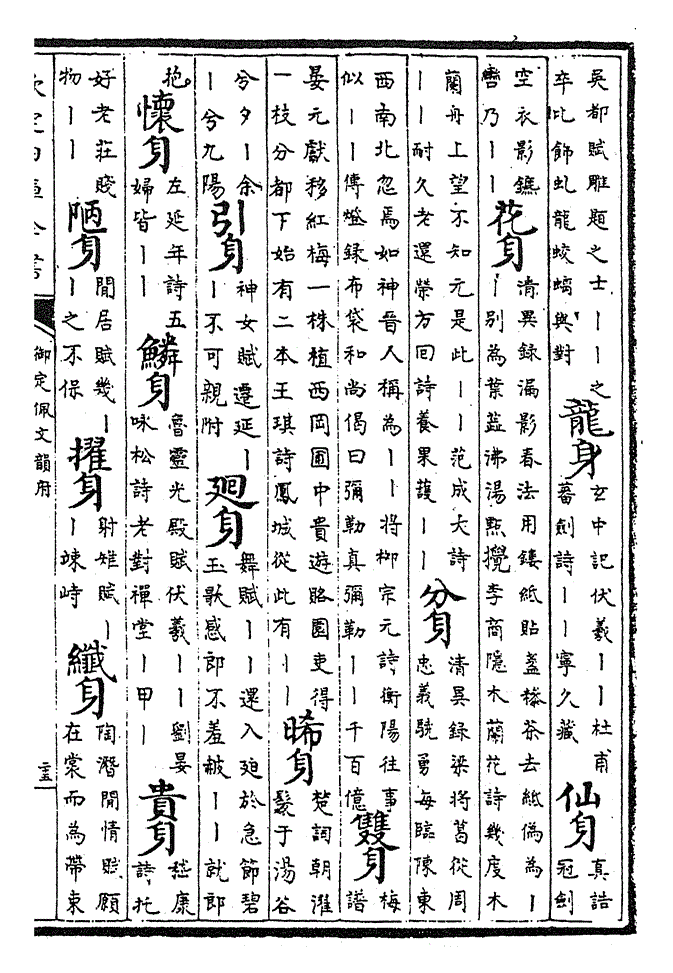 吳都賦雕題之士丨丨之
卒比飾虬龍蛟螭與對
龍身
玄中記伏羲丨丨杜甫
蕃劍詩丨丨寧久藏
仙身
真誥
冠劍
空衣影鑣
轡乃丨丨
花身
清異錄漏影春法用鏤紙貼盞糝茶去紙偽為丨
丨別為葉蕋沸湯㸃攪李商隱木蘭花詩幾度木
蘭舟上望不知元是此丨丨范成大詩
丨丨耐久老還榮方回詩養果護丨丨
分身
清異錄梁將葛從周
忠義驍勇每臨陳東
西南北忽焉如神晉人稱為丨丨將柳宗元詩衡陽往事
似丨丨傳燈錄布袋和尚偈曰彌勒真彌勒丨丨千百億
雙身
梅
譜
晏元獻移紅梅一株植西岡圃中貴遊賂園吏得
一枝分都下始有二本王琪詩鳳城從此有丨丨
晞身
楚詞朝濯
髮于湯谷
兮夕丨余
丨兮九陽
引身
神女賦遷延丨
丨不可親附
廻身
舞賦丨丨還入廹於急節碧
玉歌感郎不羞赧丨丨就郎
抱
懷身
左延年詩五
婦皆丨丨
鱗身
魯靈光殿賦伏羲丨丨劉晏
咏松詩老對禪堂丨甲丨
貴身
嵇康
詩托
好老莊賤
物丨丨
陋身
閒居賦幾丨
丨之不保
擢身
射雉賦丨
丨竦峙
纖身
陶潛閒情賦願
在裳而為帶束
欽定四庫全書
御定佩文韻府